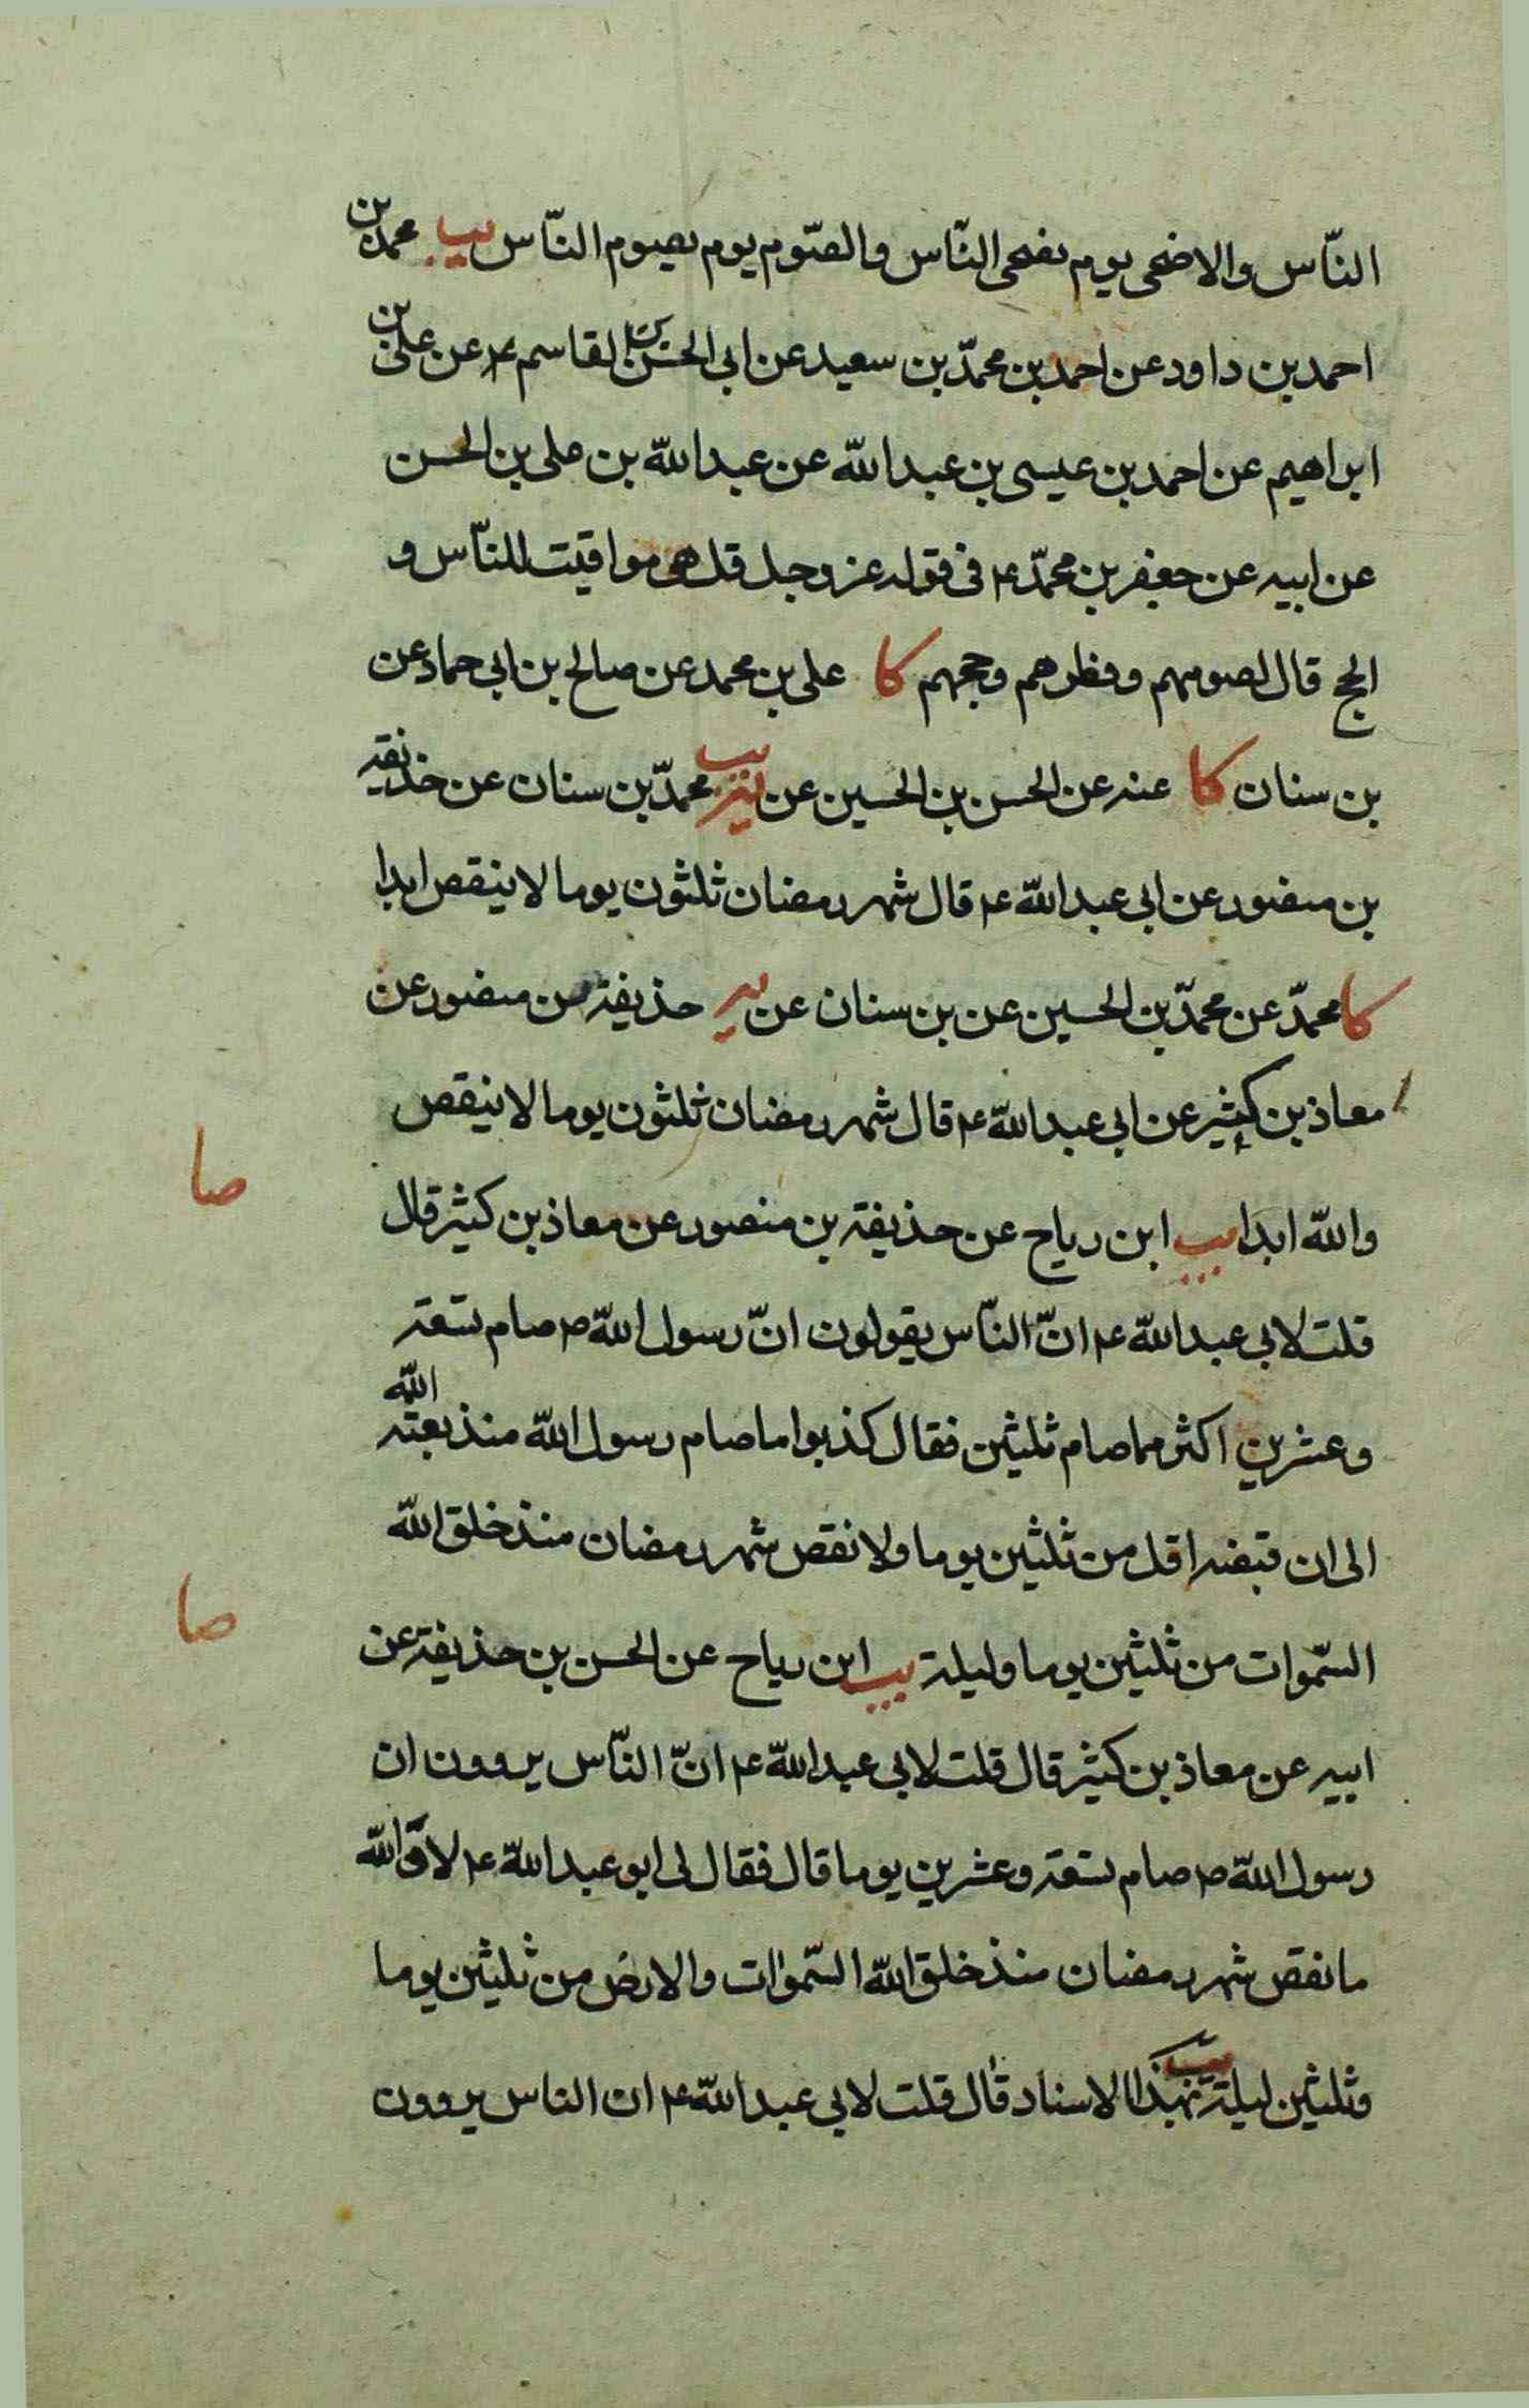 النّاس والاضحى يوم يضحى النّاس والصّوم يوم يصوم النّاس يب محمد بن
احمد بن داود عن احمد بن محمّد بن سعيد عن ابى الحسن القاسم ع عن على بن
ابراهيم عن احمد بن عيسى بن عبد اللّه عن عبد اللّه بن على بن الحسن
عن ابيه عن جعفر بن محمّد ع فى قوله عز وجل قل هى مواقيت للنّاس و
الحج قال لصومهم وفطرهم وحجهم كا على بن محمد عن صالح بن ابى حماد عن
بن سنان كا عنه عن الحسن بن الحسين عن يب محمدّ بن سنان عن حذيفة
بن منصور عن ابى عبد اللّه ع قال شهر رمضان ثلثون يوما لا ينقص ابدا
كا محمدّ عن محمدّ بن الحسين عن بن سنان عن حذيفة بن منصور عن
معاذ بن كثير عن ابى عبد اللّه ع قال شهر رمضان ثلثون يوما لا ينقص
صا
واللّه ابدا يب ابن رياح عن حذيفة بن منصور عن معاذ بن كثير قال
قلت لابى عبد اللّه ع انّ النّاس يقولون انّ رسول اللّه ص صام تسعة
وعشرين اكثر مما صام ثلثين فقال كذبوا ما صام رسول اللّه منذ بعثه اللّه
الى ان قبضه اقل من ثلثين يوما ولا نقص شهر رمضان منذ خلق اللّه
صا
السّموات من ثلثين يوما وليلة يب ابن رياح عن الحسن بن حذيفة عن
ابيه عن معاذ بن كثير قال قلت لابى عبد اللّه ع انّ النّاس يروون ان
رسول اللّه ص صام تسعة وعشرين يوما قال فقال لى ابو عبد اللّه ع لا واللّه
ما نقص شهر رمضان منذ خلق اللّه السّموات والارض من ثلثين يوما
وثلثين ليلة يب بهذا الاسناد قال قلت لابى عبد اللّه ع ان الناس يروون